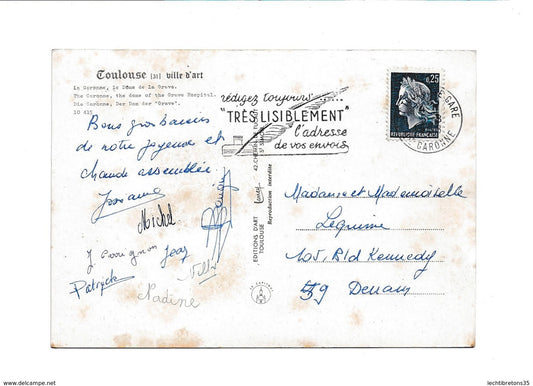 Toulouse [31] ville d'art
La Garonne, le Dôme de la Grave.
The Garonne, the dome of the Grave Hospital.
Die Garonne, Der Dom der "Grave".
10 415
Bons gros baisers
de notre joyeuse et
chaude assemblée
Michel
Jeay
Patryck
Nadine
rédigez toujours......
"TRÈS LISIBLEMENT"
l'adresse
de vos envois
0,25
REPUBLIQUE FRANÇAISE
GARE
GARONNE
EDITIONS D'ART
TOULOUSE
Reproduction interdite
Madame et Mademoiselle
Lequime
105, Bld Kennedy
59 Denain
www.delcampe.net
lechtibretons35